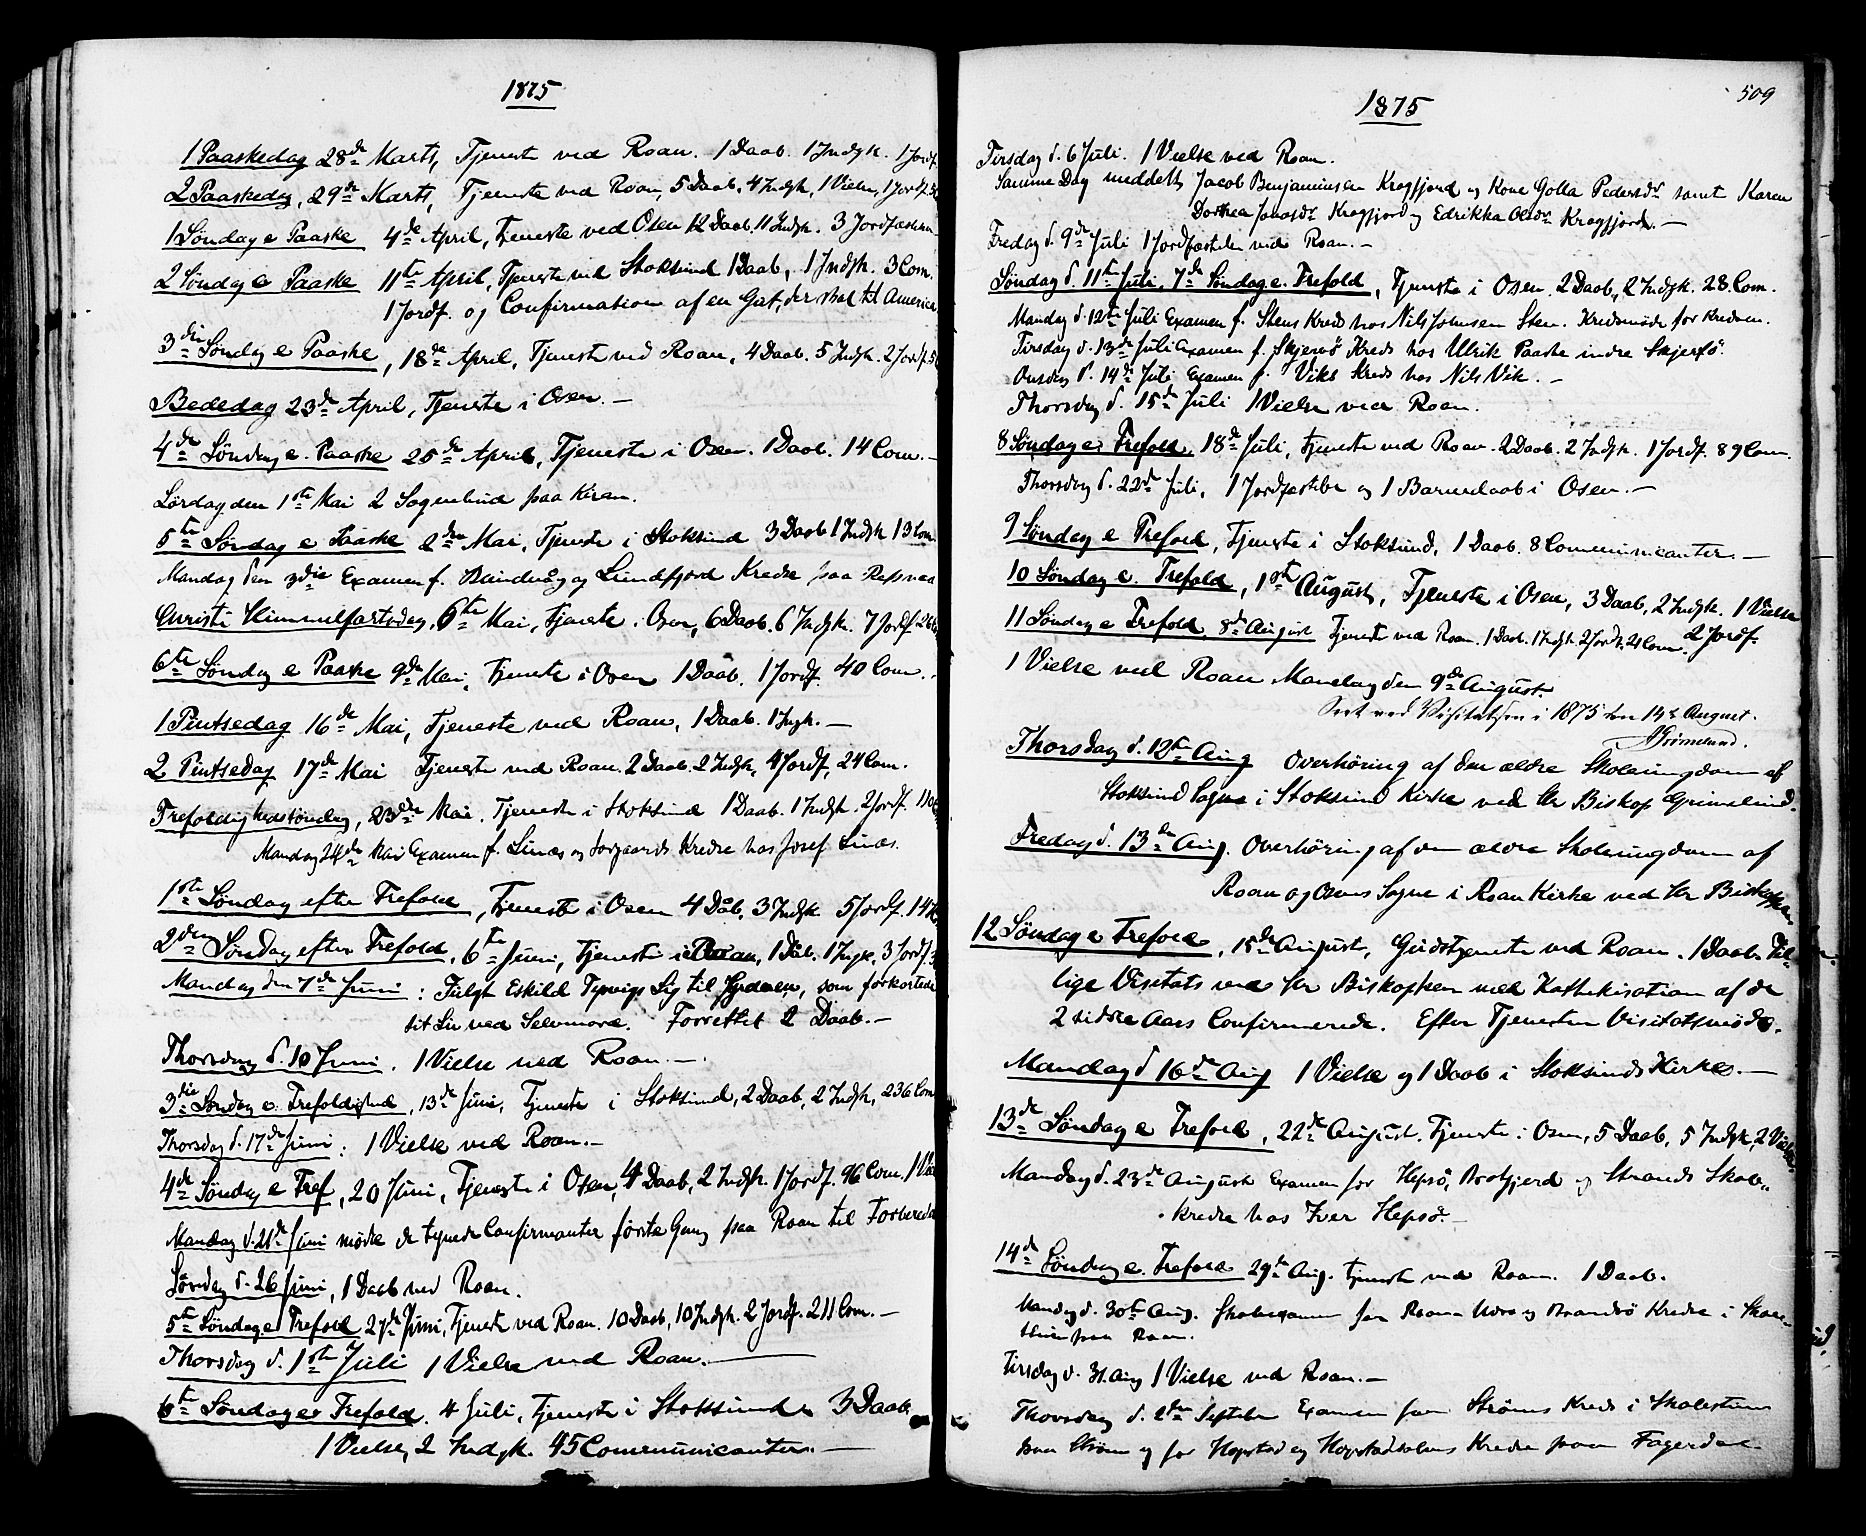 1875
1 Paaskedag 28de Marts, Tjeneste ved Roan. 1 Daab. 1 Indgk. 1 Jordf.
2 Paaskedag, 29de Marts, Tjeneste ved Roan, 5 Daab, 4 Indgk, 1 Vielse, 1 Jordf.
1 Søndag e Paaske 4de April, Tjeneste ved Osen 12 Daab. 11 Indgk. 3 Jordfæstelser
2 Søndag e Paaske 11te April, Tjeneste ved Stoksund 1 Daab, 1 Indgk. 3 Com.
1 Jordf. og Confirmation af en Gut, der skal til America
3die Søndag e Paaske, 18de April, Tjeneste ved Roan, 4 Daab. 5 Indgk. 2 Jordf.
Bededag 23de April, Tjeneste i Osen. —
4de Søndag e. Paaske 25de April, Tjeneste i Osen. 1 Daab. 14 Com. —
Lørdag den 1ste Mai 2 Sognebud paa Kiran.
5te Søndag e Paaske 2den Mai, Tjeneste i Stoksund 3 Daab 1 Indgk 13 Com
Mandag den 3die Examen f. og Lindefjord Kredse paa Refsnæs
Christi Himmelfartsdag, 6te Mai, Tjeneste i Osen, 6 Daab. 6 Indgk. 7 Jordf.
6te Søndag e Paaske 9de Mai, Tjeneste i Osen 1 Daab. 1 Jordf. 40 Com.
1 Pintsedag 16de Mai, Tjeneste ved Roan, 1 Daab. 1 Ingk. —
2 Pintsedag 17de Mai Tjeneste ved Roan. 2 Daab. 2 Indgk, 4 Jordf, 24 Com.
Trefoldighedssøndag, 23de Mai. Tjeneste i Stoksund 1 Daab. 1 Indgk. 2 Jordf.
Mandag 24de Mai Examen f. Linæs og Sørgaards Kredse hos Josef Linæs.
1ste Søndag efter Trefold, Tjeneste i Osen 4 Dåb, 3 Indgk 5 Jordf.
2den Søndag efter Trefold, 6te Juni, Tjeneste i Roan, 1 Dåb. 1 Ingk, 3 Jordf.
Mandag den 7de Juni: Fulgt Eskild Tepvigs Lig til Jorden, som forkortede
sit Liv ved Selvmord. Forrettet 2 Daab. —
Thorsdag d. 10 Juni. 1 Vielse ved Roan. —
3die Søndag e. Trefoldighed, 13de Juni, Tjeneste i Stoksund, 2 Daab, 2 Indgk, 236 Com
Thorsdag d. 17de Juni: 1 Vielse ved Roan. —
4de Søndag e Tref, 20 Juni, Tjeneste i Osen, 4 Daab, 2 Indgk. 1 Jordf. 96 Com. 1 Viel
Mandag d. 21de Juni mødte de Confirmanter første Gang paa Roan til Forbered
Lørdag d. 26 Juni, 1 Daab ved Roan.
5te Søndag e Trefold 27de Juni, Tjeneste ved Roan. 10 Daab, 10 Indgk. 2 Jordf. 211 Com. —
Thorsdag d. 1ste Juli 1 Vielse ved Roan. —
6te Søndag e Trefold. 4 Juli, Tjeneste i Stoksund. 3 Daab,
1 Vielse, 2 Indgk. 45 Communicanter. —
509
1875
Tirsdag d. 6 Juli. 1 Vielse ved Roan.
Samme Dag meddelt Jacob Benjaminsen Kragfjord og Kone Golla Pedersdr samt Karen
Dorthea Jonasdr Kragfjord og Edrikka Olsdr Kragfjord. —
Fredag d. 9de Juli 1 Jordfæstelse ved Roan. —
Søndag d. 11te Juli, 7de Søndag e. Trefold, Tjeneste i Osen. 2 Daab, 2 Indgk. 28 Com.
Mandag d. 12te Juli Examen f. Stens Kreds hos Nils Johnsen Sten. Kredsmøde for Kredsen.
Tirsdag d. 13de Juli Examen f. Skjervø Kreds hos Ulrik Paaske indre Skjervø.
Onsdag d. 14de Juli Examen f. Viks Kreds hos Nils Vik. —
Thorsdag d. 15de Juli 1 Vielse ved Roan.
8 Søndag e. Trefold, 18de Juli, Tjeneste ved Roan. 2 Daab. 2 Indgk. 1 Jordf. 89 Com.
Thorsdag d. 22de Juli, 1 Jordfæstelse og 1 Barnedaab i Osen. —
9 Søndag e Trefold, Tjeneste i Stoksund, 1 Daab. 8 Communicanter. —
10 Søndag e. Trefold, 1ste August, Tjeneste i Osen, 3 Daab, 2 Indgk. 1 Vielse
2 Jordf.
11 Søndag e Trefold, 8de August Tjeneste ved Roan. 1 Daab. 1 Indgk. 2 Jordf. 21 Com.
1 Vielse ved Roan Mandag den 9de August.
Seet ved Visitatsen i 1875 den 14de August.
Grimelund.
Thorsdag d. 12te Aug Overhøring af den ældre Skoleungdom af
Stoksund Sogn i Stoksund Kirke ved Hr Biskop Grimelund.
Fredag d. 13de Aug. Overhøring af den ældre Skoleungdom af
Roan og Osens Sogne i Roan Kirke ved Hr Biskoppen
12 Søndag e Trefold, 15de August, Gudstjeneste ved Roan. 1 Daab. Til-
lige Visitats ved Hr Biskoppen med Kathekisation af de
2 sidste Aars Confirmerede. Efter Tjenesten Visitatsmøde.
Mandag d 16de Aug 1 Vielse og 1 Daab i Stoksunds Kirke. —
13de Søndag e Trefold, 22de August. Tjeneste i Osen, 5 Daab, 5 Indgk, 2 Vielse.
Mandag d. 23de August Examen for Hepsø, og Strands Skole-
kredse hos Iver Hepsø. —
14de Søndag e. Trefold 29de Aug. Tjeneste ved Roan. 1 Daab.
Mandag d. 30te Aug. Skoleexamen for Roan og Brandsø Kredse i Skole-
paa Roan.
Tirsdag d. 31 Aug 1 Vielse ved Roan. —
Thorsdag d. 2den Septebr Examen for Strøms Kreds i Skolestuen
paa Strøm og for Hopstad og Kredse paa Fagerdal